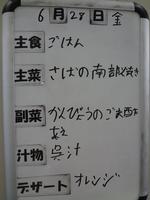 6月28日 金
主食 ごはん
主菜 さばの南部焼き
副菜 かんぴょうのごま酢
和え
汁物 呉汁
デザート オレンジ